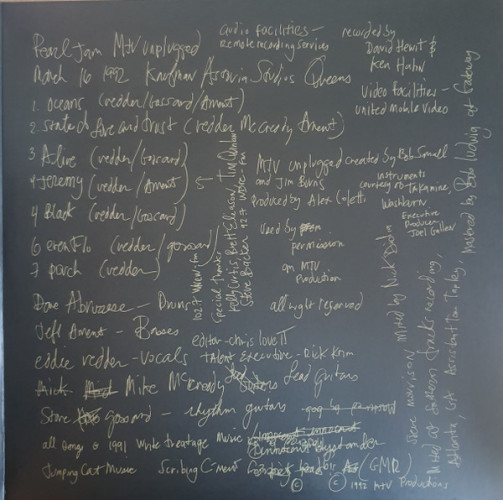 Pearl Jam MTV unplugged
March 16 1992 Kaufman Astoria Studios Queens
1. Oceans (vedder/Gossard/Ament)
2. State of love and trust (vedder McCready Ament)
3 Alive (vedder/Gossard)
4 Jeremy (vedder/Ament)
4 Black (vedder/Gossard)
6 evenflo (vedder/gossard)
7 porch (vedder)
Dave Abruzzese - Drums
Jeff Ament - Basses
eddie vedder - vocals
Mike McCready Lead Guitars
Stone gossard - rhythm guitars
all songs © 1991 write treatage music
Jumping Cat Music Scribing C-ment (GMR)
audio facilities -
remote recording services
recorded by
David Hewitt &
Ken Hahn
Video facilities -
united Mobile Video
MTV unplugged created by Bob Small
and Jim Burns
produced by Alex Coletti
Instruments
courtesy of Takamine,
Washburn
Executive
Producer
Joel Gallen
used by
permission
an MTV
Production
all right reserved
editor - chris lovett
Talent Executive - Rick Krim
© © 1992 MTV Productions
Special Thanks
Kelly Curtis, Brett Eliason,
Mixed by Nick
Steve morrison
Atlanta, GA Assistant Tom Tapley,
Mastered by Bob Ludwig at Gateway